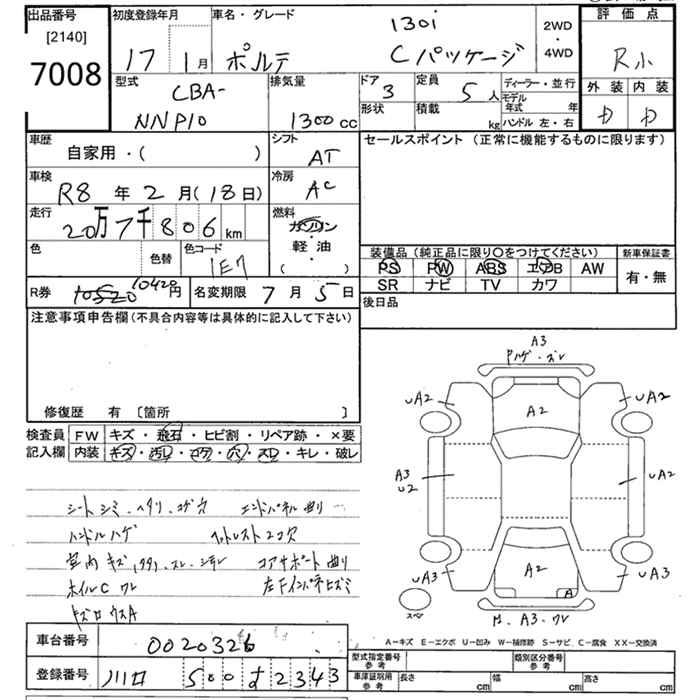 出品番号
[2140]
7008
初度登録年月
17 1月
車名・グレード
130i
ポルテ Cパッケージ
2WD
・
4WD
評価点
R小
外装 内装
型式
CBA-
NNP10
排気量
1300cc
ドア
3
定員
5人
形状 積載 kg
ディーラー・並行
モデル年式 年
ハンドル 左・右
車歴
自家用・( )
シフト
AT
セールスポイント (正常に機能するものに限ります)
車検
R8年2月(18日)
冷房
AC
走行
20万7千806km
燃料
ガソリン
軽・油
( )
色 色替
色コード
1E7
装備品(純正品に限り○をつけてください)
PS PW ABS エアB AW
SR ナビ TV カワ
新車保証書
有・無
R券 10520 10420円
名変期限 7月5日
後日品
注意事項申告欄(不具合内容等は具体的に記入して下さい)
修復歴 有 〔箇所 〕
検査員記入欄
FW キズ・飛石・ヒビ割・リペア跡・×要
内装 キズ・汚レ・コゲ・穴・スレ・キレ・破レ
シートシミ・ヘタリ・コゲ穴 エンドパネル曲リ
ハンドルハゲ
室内キズ コアサポート曲リ
ホイルC ワレ
A3
UA2 A2 UA2
A3
U2
UA2
UA3 A2 A UA3
スペア
A3・ワレ
車台番号 0020326
A－キズ E－エクボ U－凹み W－補修跡 S－サビ C－腐食 XX－交換済
登録番号 川口 500 す 2343
型式指定番号
参考
類別区分番号
参考
車庫証明用
参考
長さ cm 幅 cm 高さ cm